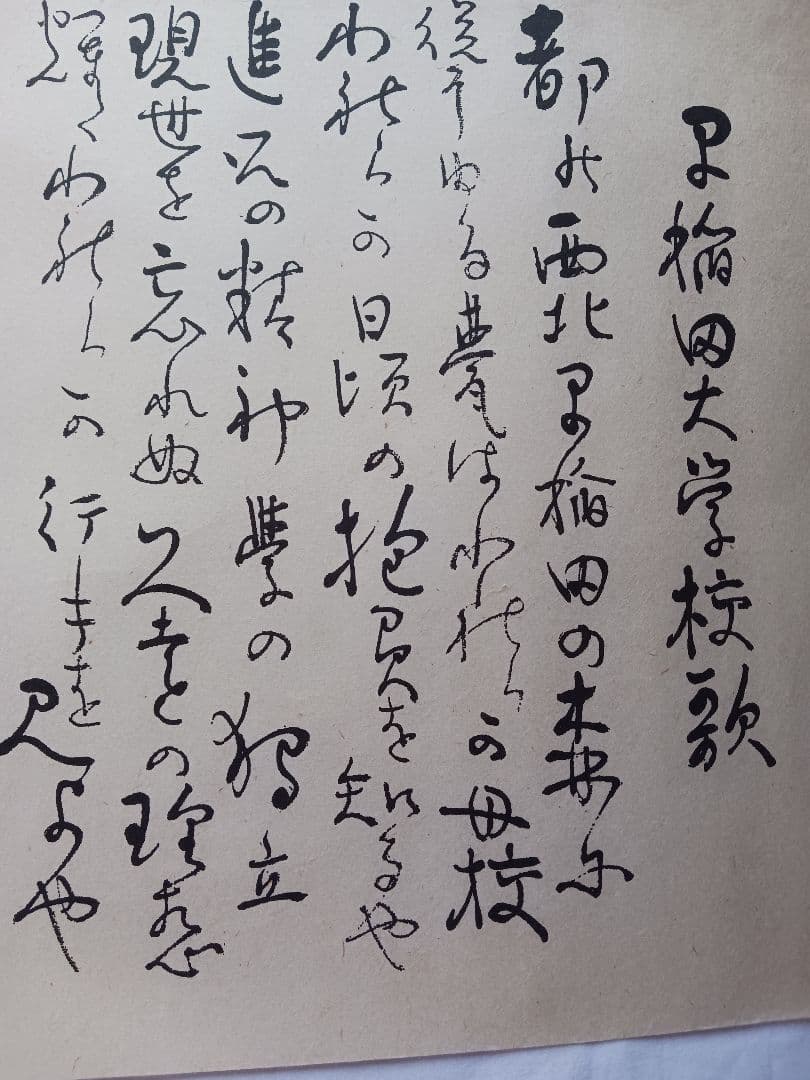 早稲田大学校歌
都の西北早稲田の森に
聳ゆる甍はわれらか母校
われらか日頃の抱負を知るや
進取の精神學の獨立
現世を忘れぬ久遠の理想
輝くわれらか行手を見よや